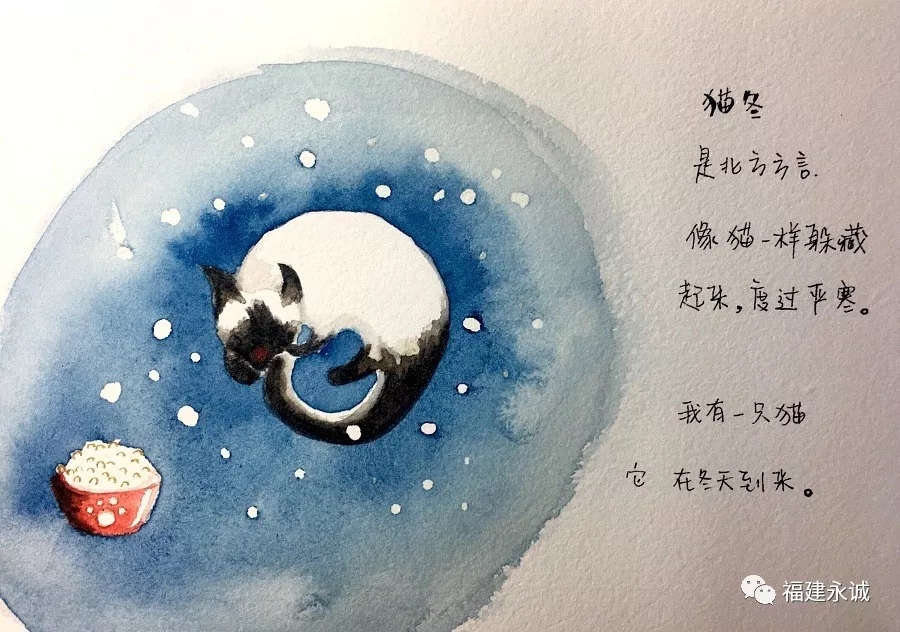 猫冬
是北方方言.
像猫一样躲藏
起来，度过严寒。
我有一只猫
它在冬天到来。
福建永诚